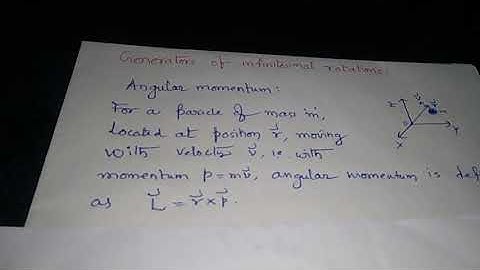 Generators of infinitesimal rotations:
Angular momentum:
For a particle of mass m,
Located at position r⃗, moving
with velocity v⃗, ie with
momentum p = mv⃗, angular momentum is def
as L⃗ = r⃗ × p⃗.
Z
Y
X